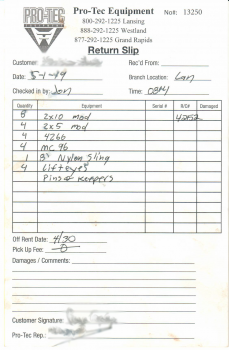 PRO-TEC
EQUIPMENT
Pro-Tec Equipment No#: 13250
800-292-1225 Lansing
888-292-1225 Westland
877-292-1225 Grand Rapids
Return Slip
Customer: Rec'd From:
Date: 5-1-19 Branch Location: Lan
Checked in by: Jon Time: 0814
Quantity Equipment Serial # R/C# Damaged
8 2x10 mod 4252
4 2x5 mod
4 4266
4 mc 96
1 8' Nylon Sling
4 Lift eyes
Pins & Keepers
Off Rent Date: 4/30
Pick Up Fee: 0
Damages / Comments:
Customer Signature:
Pro-Tec Rep.: